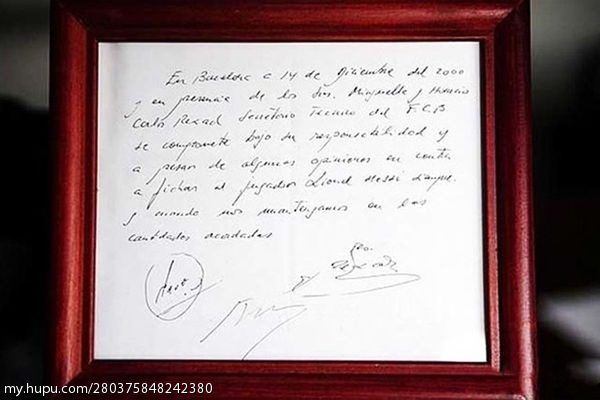 En Barcelona a 14 de Diciembre del 2000
y en presencia de los Srs. Minguella y Horacio
Carlos Rexach Secretario Tecnico del F.C.B
se compromete bajo su responsabilidad y
a pesar de algunas opiniones en contra
a fichar al jugador Lionel Messi siempre
y cuando nos mantengamos en las
cantidades acordadas
my.hupu.com/280375848242380